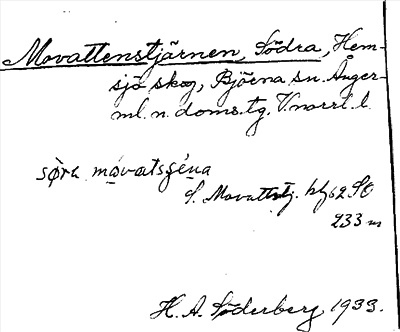 Movattenstjärnen, Södra, Hem-
sjö skog, Björna sn. Ånger-
ml. n. doms.tg. V.norrl. l.
sø̀ra mòvatsʂɛ́na
S. Movattstj. hfg 62 SO
233 m
H. A. Söderberg 1933.